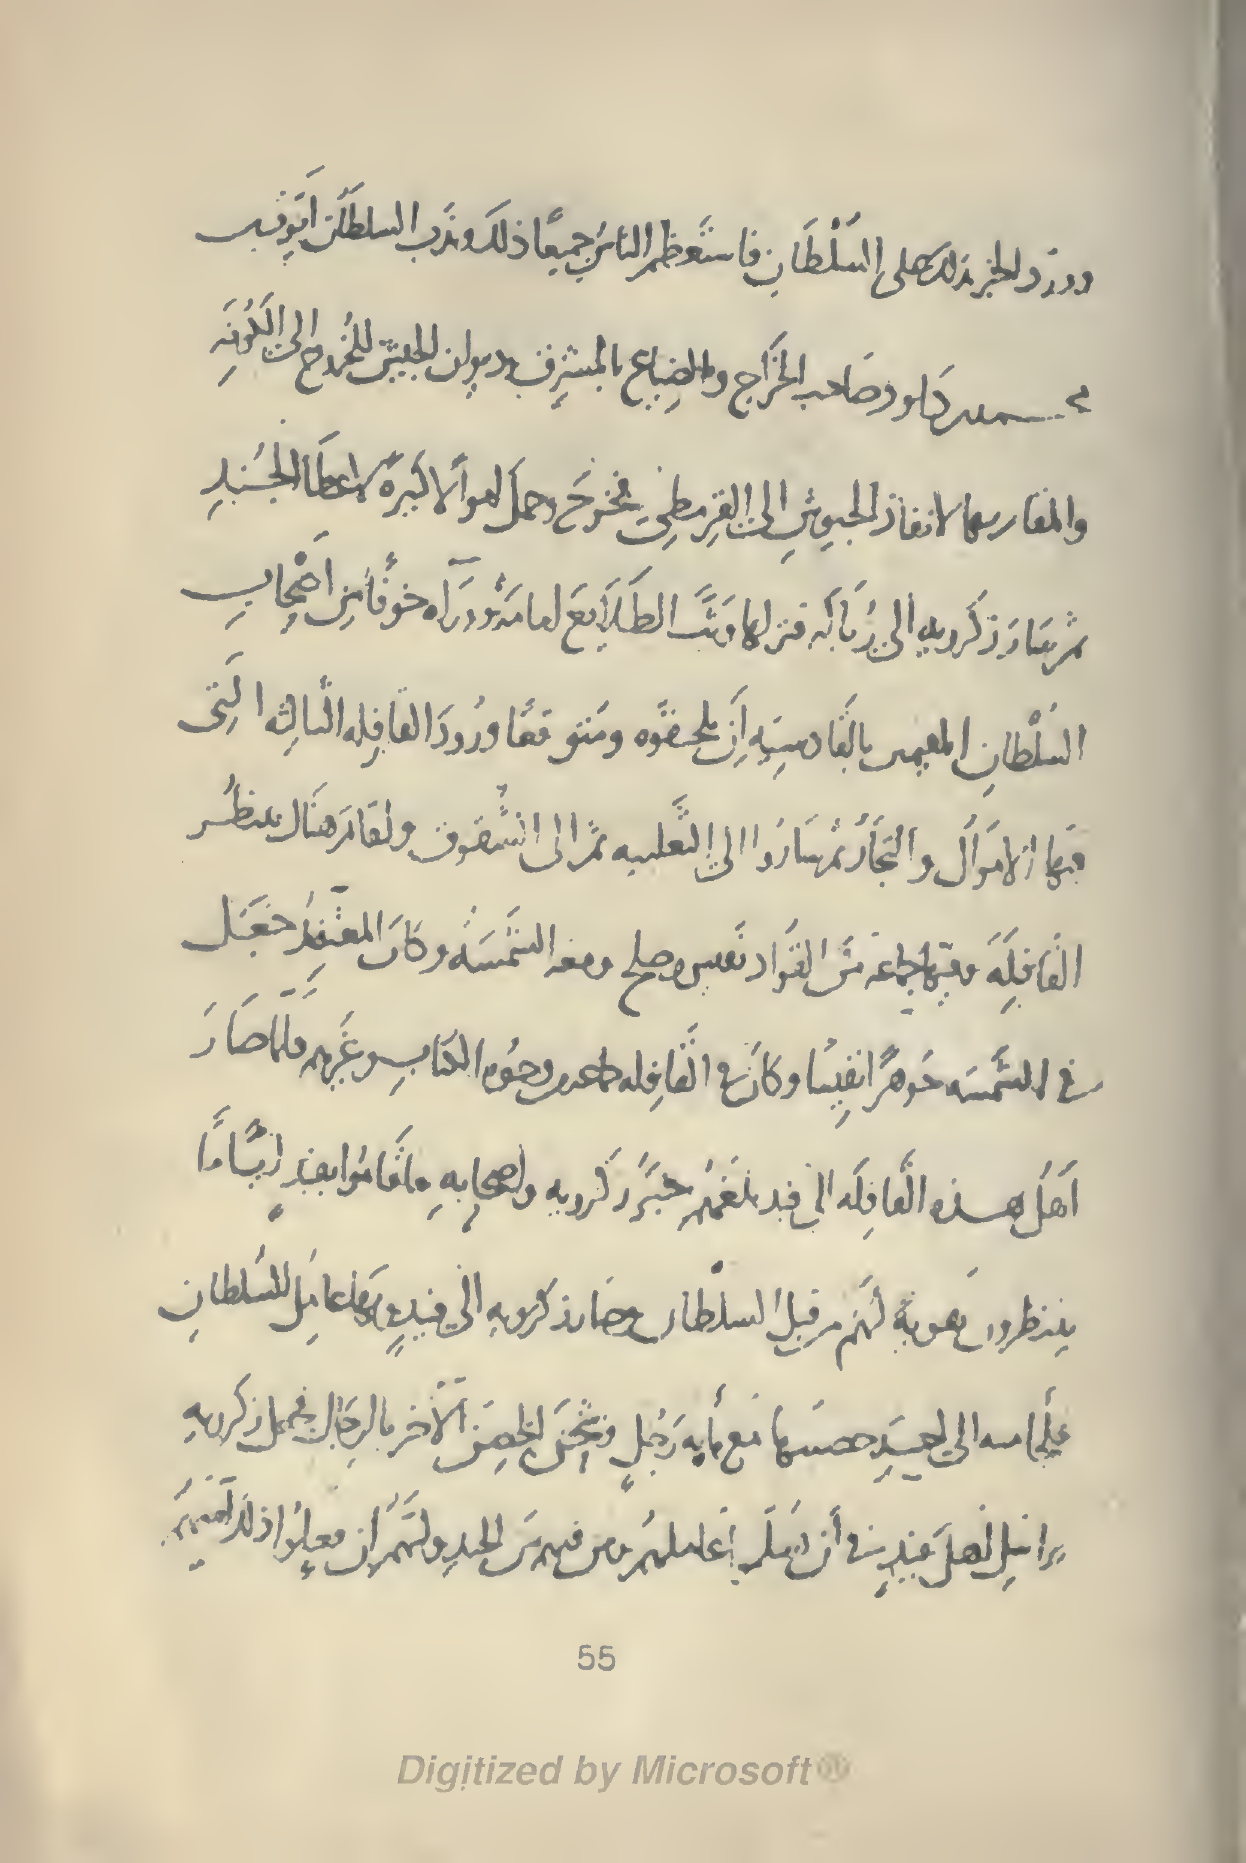 وورد الخبر بذلك على السلطان فاستعظم الناس جميعا ذلك وندب السلطان
محمد بن داود صاحب الخراج والضياع بالمشرق وديوان الجيش للخروج الى الكوفه
والمقام بها لانفاذ الجيوش الى القرمطي فخرج وحمل اموالا كثيرة لاعطا الجند
ثم سار زكرويه الى زباله فنزلها وبث الطلايع امامه ووراه خوفا من اصحاب
السلطان المقيمين بالقادسيه ان يلحقوه ومتوقعا ورود القافله الثالثه التي
فيها الاموال والتجار ثم سار الى الثعلبيه ثم الى الشقوق واقام هناك ينظر
القافله وفيها جماعه من القواد نفيس وصلح ومعه الشمسه وكان المعتضد جعل
في الشمسه جوهرا نفيسا وكان في القافله جماعه من وجوه الكتاب وغيرهم فلما صار
اهل هذه القافله الى فيد بلغهم خبر زكرويه واصحابه فاقاموا بفيد اياما
ينتظرون تقوية لهم من قبل السلطان وصار زكرويه الى فيد وبها عامل للسلطان
مع مايه رجل وشحن الحصن الاخر بالرجال فجعل زكرويه
يراسل اهل فيد في أن عاملهم ومن فيهم من الجند وانهم ان فعلوا ذلك امنهم
55
Digitized by Microsoft®